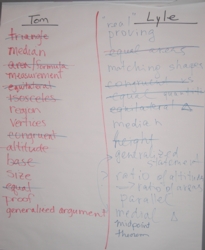 Tom
triangle
median
area formula
measurement
equilateral
isosceles
region
vertices
congruent
altitude
base
size
equal
proof
generalized argument
Lyle
"real"
proving
equal sizes
matching shapes
median
height
generalized
ratio of altitude
ratio of areas
parallel
medial Δ
midpoint
theorem